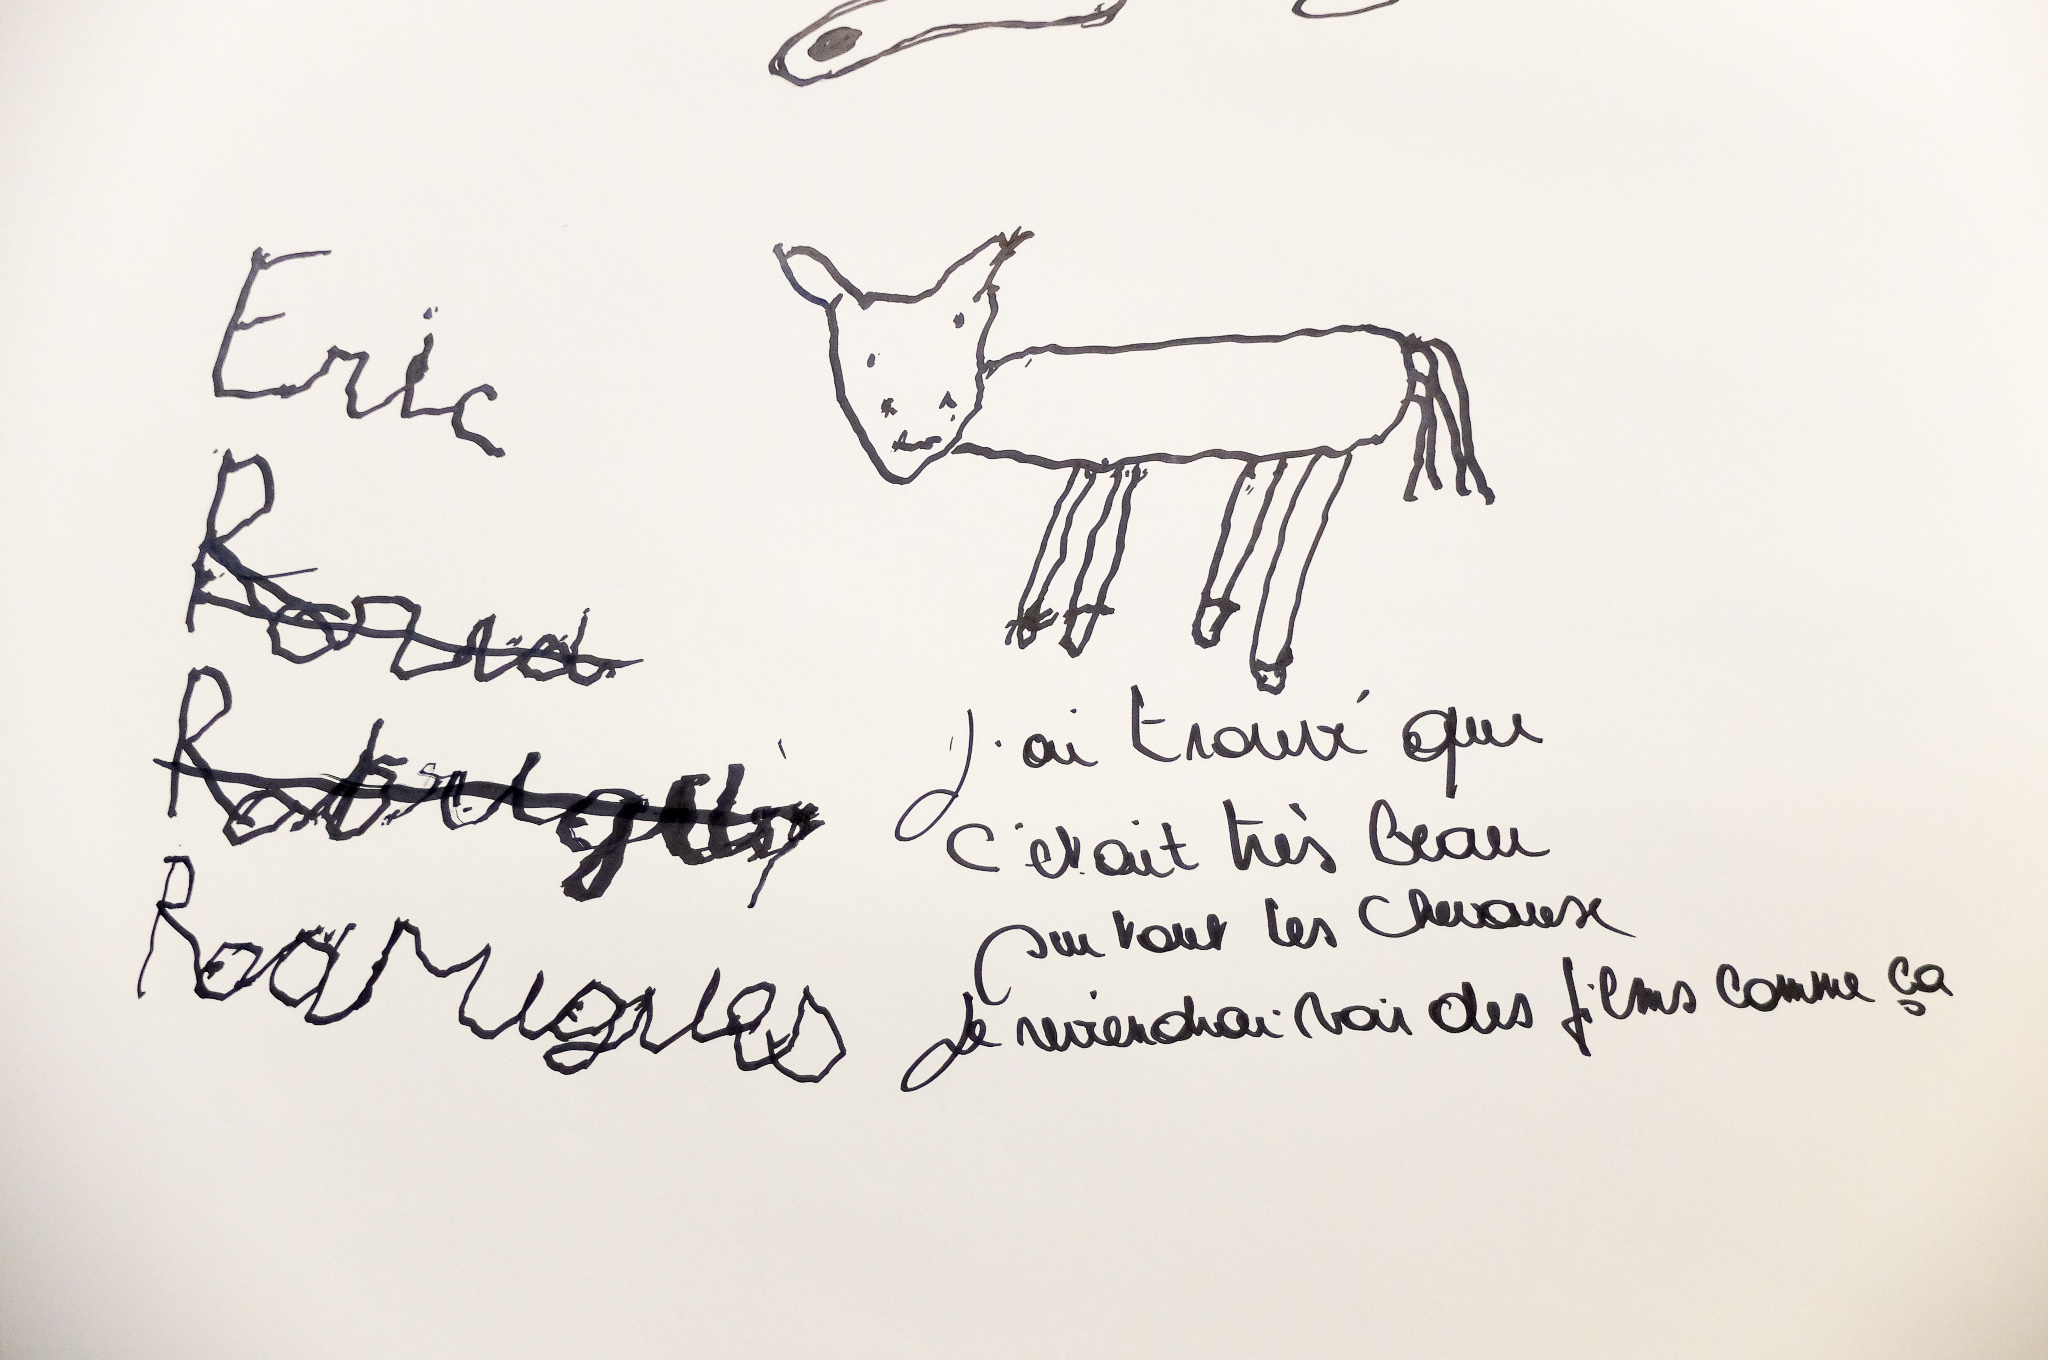 Eric
J'ai trouvé que
C'était très beau
surtout les chevaux
Je reviendrai voir des films comme ça